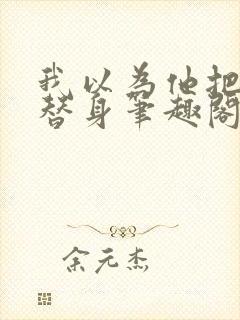 我以为他把
替身笔趣阁
余元杰